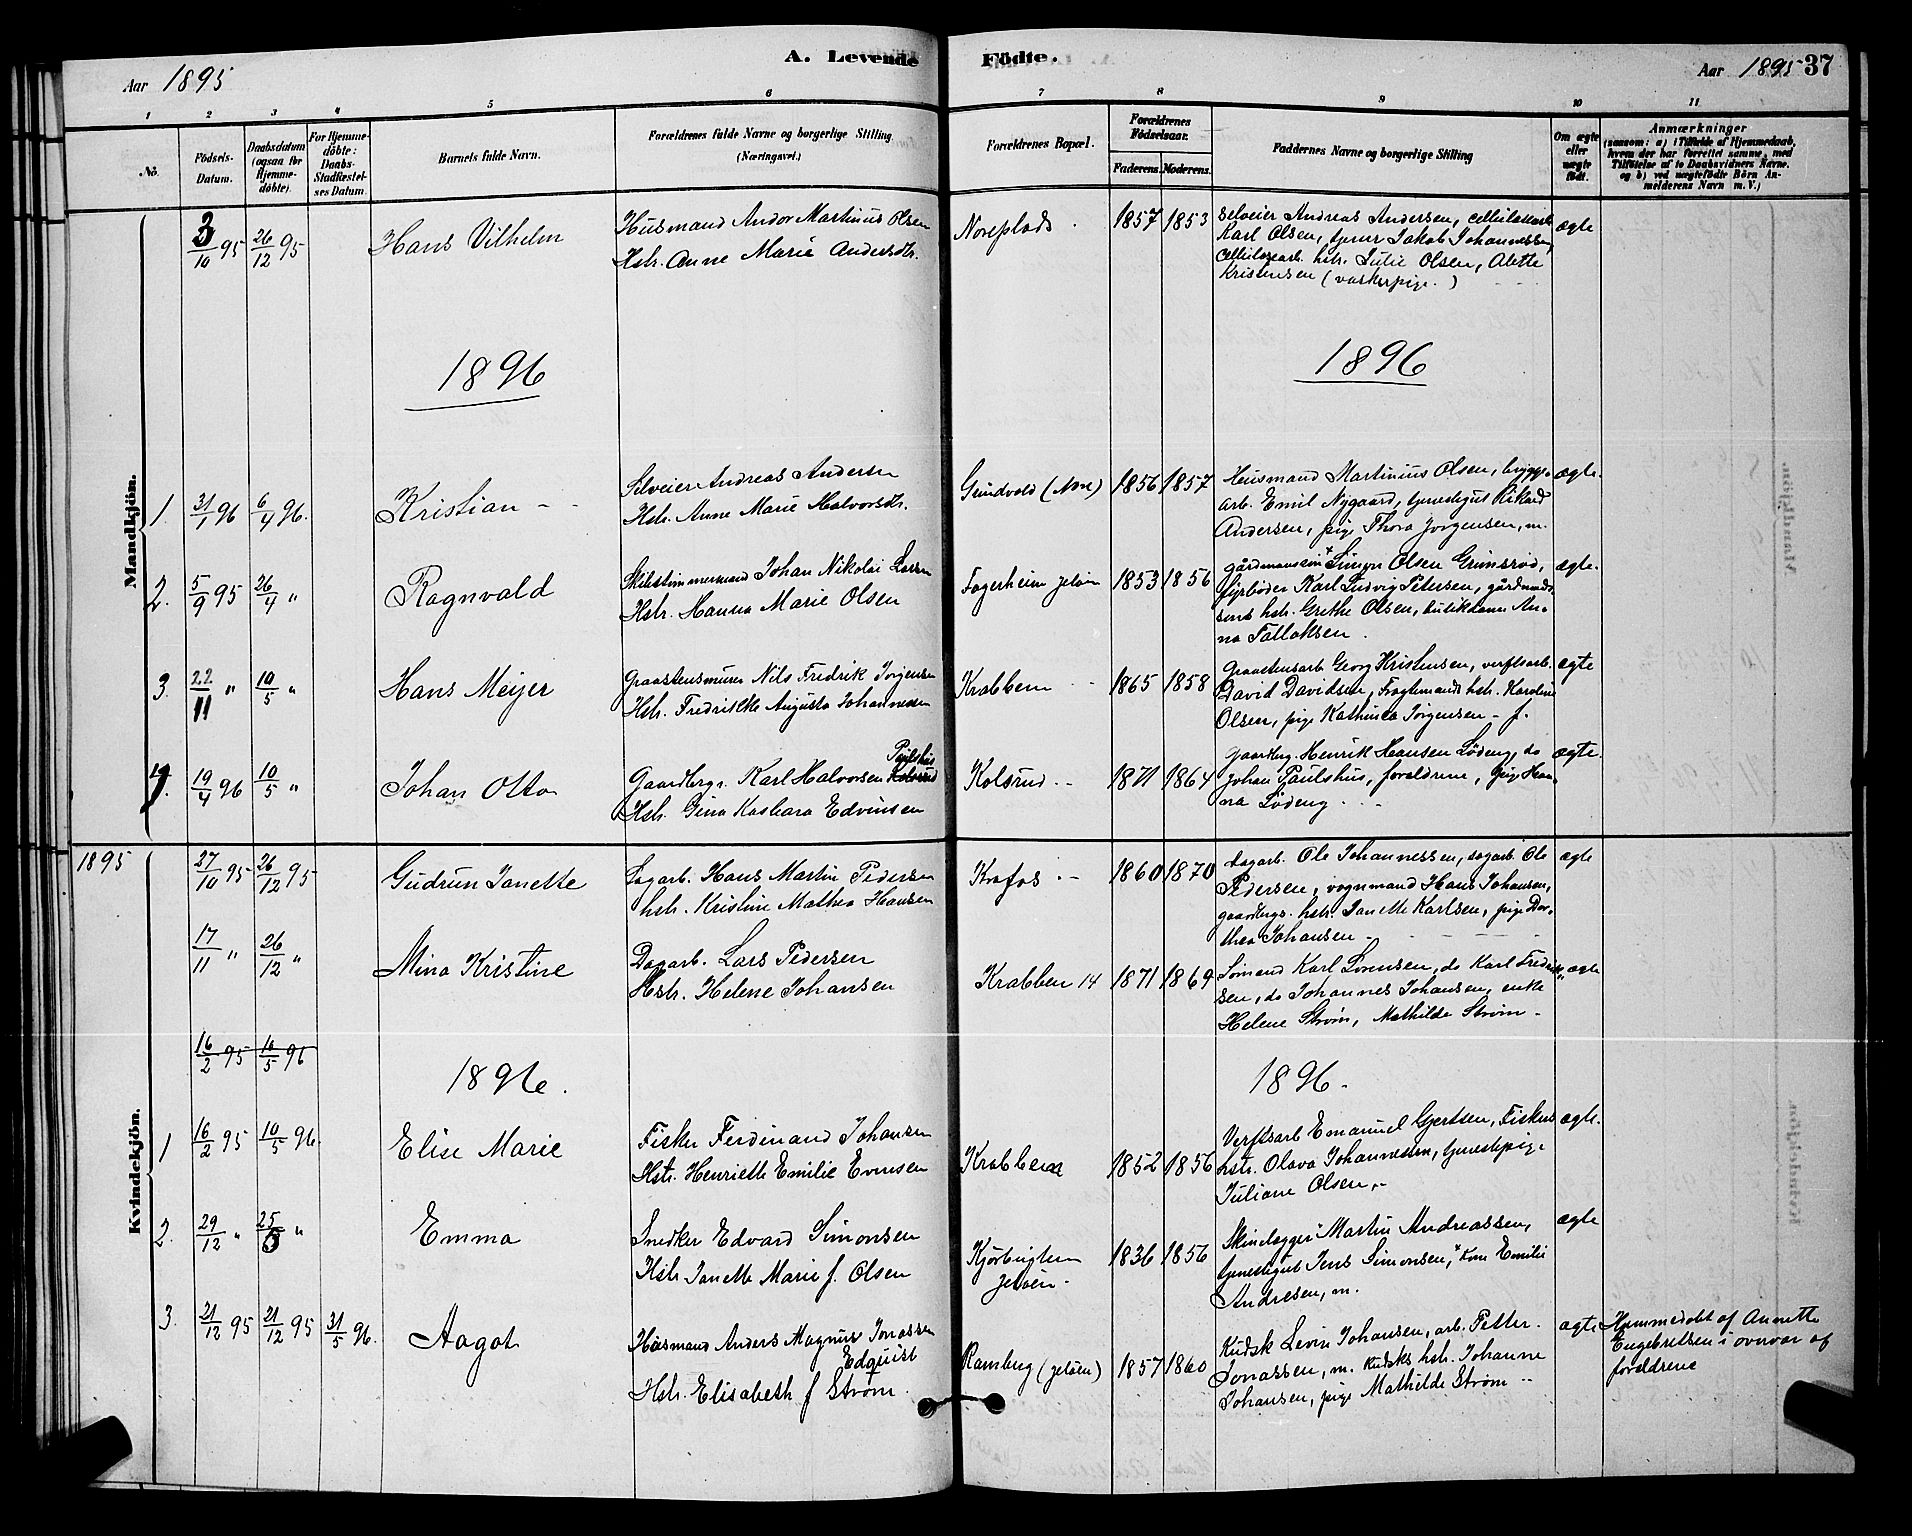 A. Levende Födte.
Aar 1895
Aar 1895 37
1 2 3 4 5 6 7 8 9 10 11
No.
Födsels-Datum.
Daabsdatum (ogsaa for Hjemme-döbte).
For Hjemme-döbte: Daabs-Stadfæstel-ses Datum.
Barnets fulde Navn.
Forældrenes fulde Navne og borgerlige Stilling (Næringsvei.)
Forældrenes Bopæl.
Forældrenes Födselsaar.
Faderens. Moderens.
Faddernes Navne og borgerlige Stilling
Om ægte eller uægte födt.
Anmærkninger
(saasom: a) i Tilfælde af Hjemmedaab,
hvem der har forrettet samme, med
Tilföielse af to Daabsvidners Navne.
og b) ved uægtefödte Börn An-
melderens Navn m. V.)
Mandkjön.
3/10 95 26/12 95 Hans Vilhelm
Husmand Andor Martinius Olsen
Hstr. Anne Marie Andersdtr.
Noreplads 1857 1853
Selveier Andreas Andersen, cellulosearb.
Karl Olsen, tjener Jakob Johannessen,
cellulosearb. hstr. Julie Olsen, Alette
Kristensen (vaskerpige.)
ægte
1896
1896
1. 31/1 96 6/4 96. Kristian
Selveier Andreas Andersen
Hstr. Anne Marie Halvorsdtr.
Grindvold (Nore) 1856 1857
Husmand Martinius Olsen, bryggs-
arb. Emil Nygaard, tjenestegut Rikard
Andersen, pige Thora Jørgensen, m.
ægte.
2. 5/9 95 26/4 " Ragnvald
Skibstømmermand Johan Nikolai Larsen
Hstr. Hanna Marie Olsen
Fagerheim Jeløen 1853 1856
gårdmansøn Simon Olsen Grimsrød,
fyrbøder Karl Ludvig Petersen, gårdmands
søns hstr. Grethe Olsen, butikdame An-
na Falloksen.
ægte.
3. 22/11 " 10/5 " Hans Meijer
Graastensmurer Nils Fredrik Jørgensen
Hstr. Fredrikke Augusta Johannessen
Krabben 1865 1858
Graastensarb Georg Kristensen, verftsarb.
David Davidsen, Fragtemands hstr. Karoline
Olsen, pige Kathinca Jørgensen - f.
ægte
4. 19/4 96 10/5 " Johan Otto
Paulshus
Gaardbrgr. Karl Halvorsen Kolsrud
Hstr. Gina Kasbara Edvinsen
Kolsrud 1871 1864
Gaardbrg. Henrik Hansen Lødeng, do
Johan Paulshus, forældrene, Pige Han-
na Lødeng
ægte.
Kvindekjön.
1895
27/10 95 26/12 95 Gudrun Janette
Dagarb. Hans Martin Pedersen
hstr. Kristine Mathea Hansen
Krafos 1860 1870
dagarb. Ole Johannessen, dagarb. Ole
Pedersen, vognmand Hans Johansen,
gaardbrgs. hstr. Janette Karlsen, pige Dor-
thea Johansen
ægte
17/11 " 26/12 " Mina Kristine
Dagarb. Lars Pedersen
Hstr. Helene Johansen
Krabben 14 1871 1869
Sømand Karl Sørensen, do Karl Fredrik-
sen, do Johannes Johansen, enke
Helene Strøm, Mathilde Strøm
ægte
16/2 95 10/5 96
1896.
1896.
1 16/2 95 10/5 96. Elise Marie
Fisker Ferdinand Johansen
Hstr. Henriette Emilie Evensen
Krabben 1852 1856
Verftsarb Emanuel Gjertsen, Fiskers
hstr. Olava Johannessen, tjenestepige
Juliane Olsen,
ægte.
2. 29/12 " 25/5 " Emma
Snedker Edvard Simonsen
Hstr. Janette Marie f. Olsen
Kjørbugten Jeløen. 1836 1856
Skinelægger Martin Andreassen,
tjenestegut Jens Simonsen, Kone Emilie
Andresen, m.
ægte
3. 21/12 95 21/12 95 31/5 96. Aagot
Husmand Anders Magnus Jonassen
Edquist
Hstr. Elisabeth f Strøm.
Ramberg (Jeløen) 1857 1860
Kudsk Levin Johansen, arb. Petter
Jonassen, m. kudsks hstr. Johanne
Johansen, pige Mathilde Strøm
ægte
Hjemmedøbt af Annette
Engebretsen i overvær af
forældrene